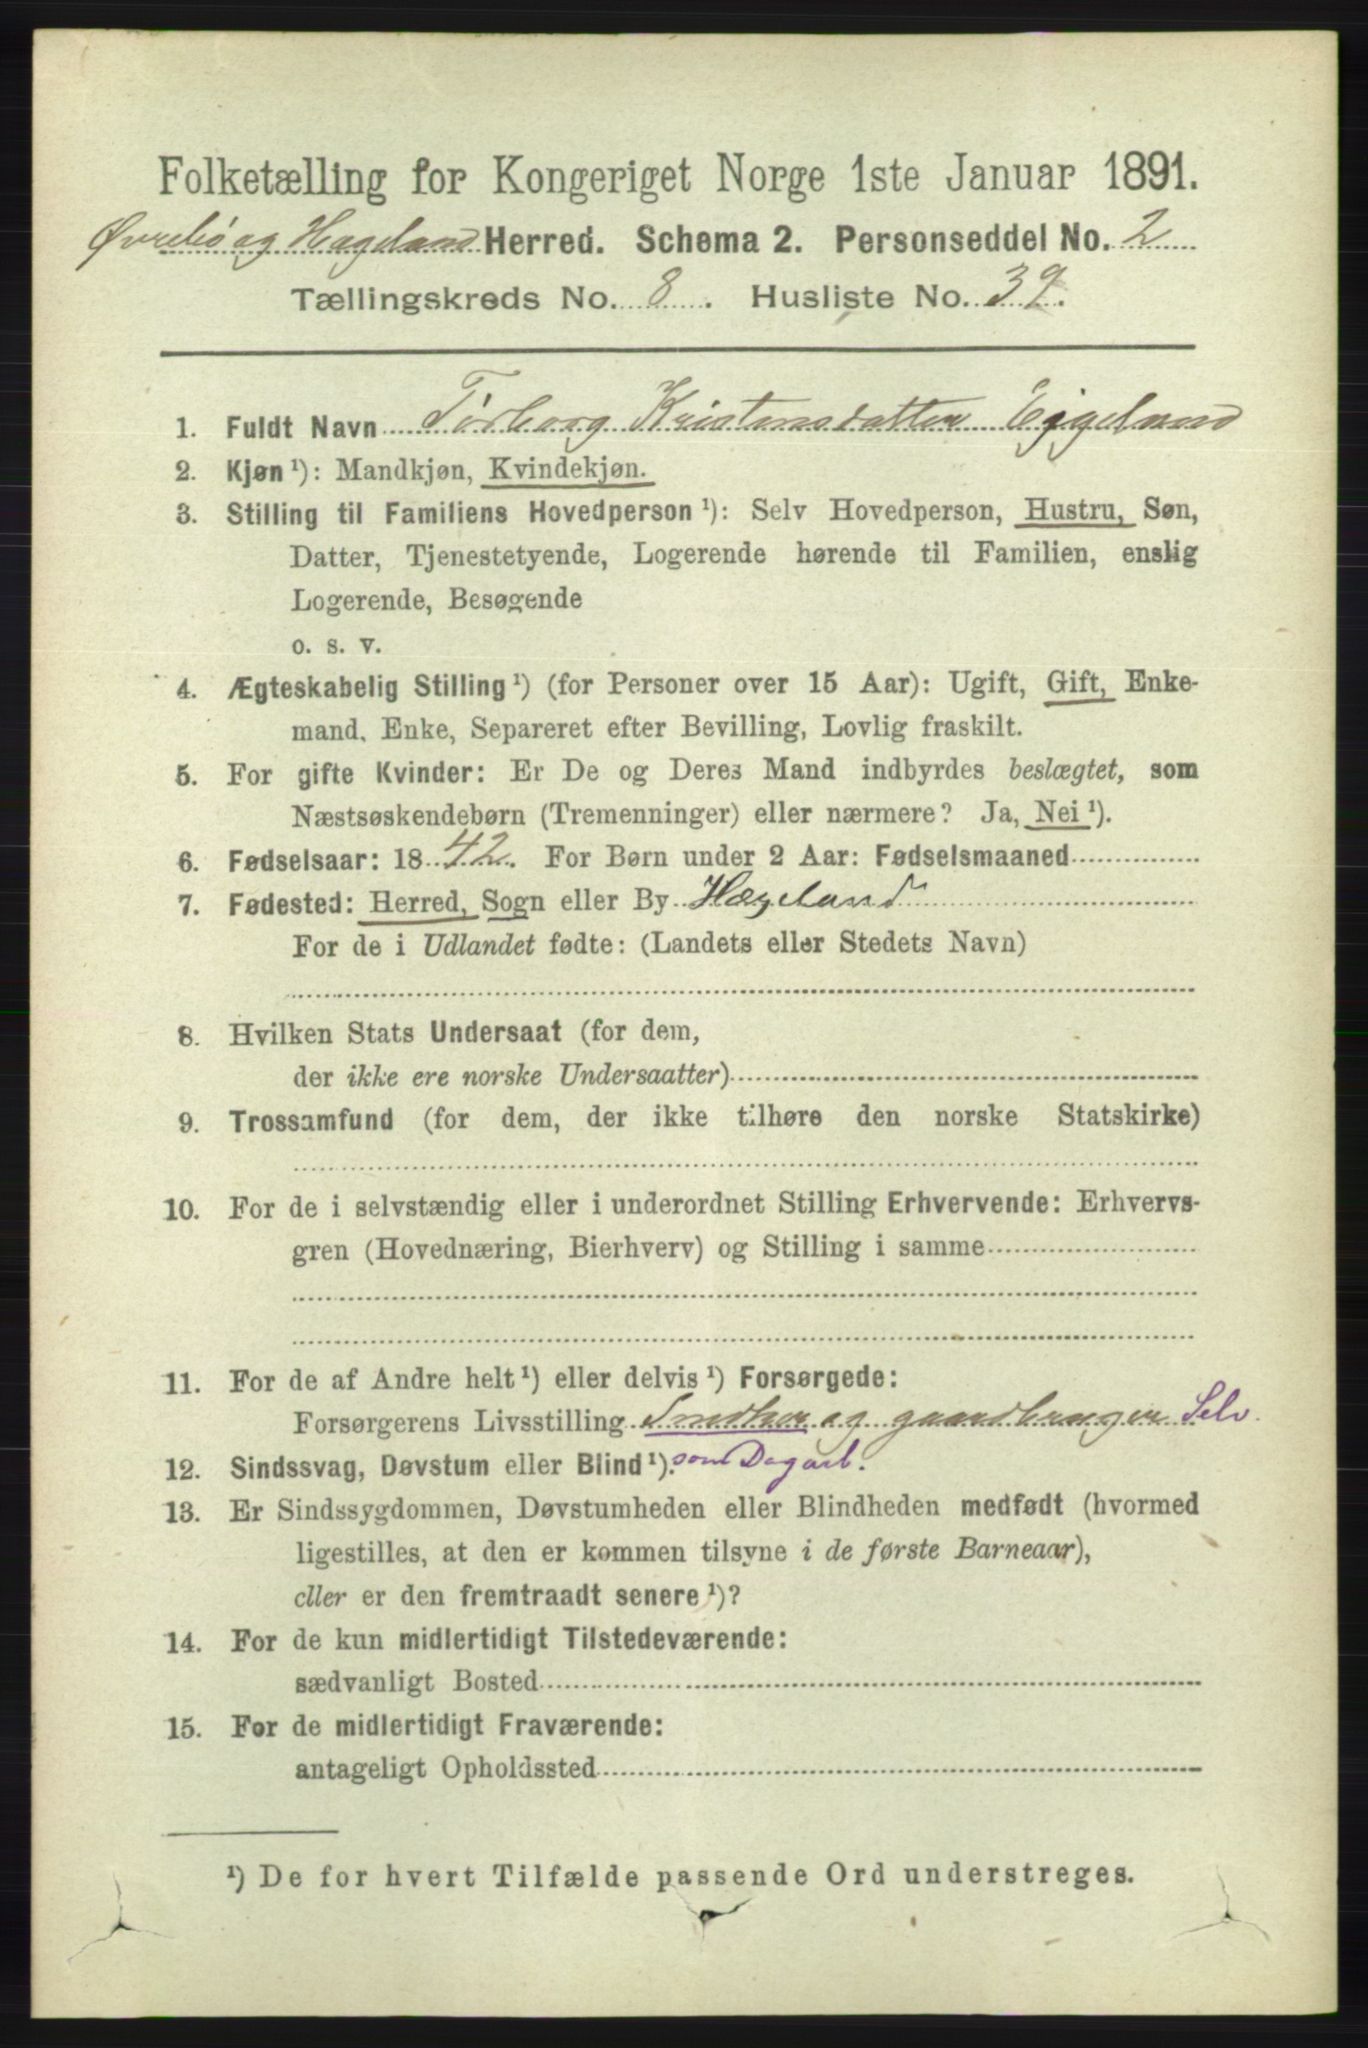 Folketælling for Kongeriget Norge 1ste Januar 1891.
Øvrebø og Hægeland Herred. Schema 2. Personseddel No. 2
Tællingskreds No. 8. Husliste No. 39.
1. Fuldt Navn Torborg Kristensdatter Eigeland
2. Kjøn ¹): Mandkjøn, Kvindekjøn.
3. Stilling til Familiens Hovedperson ¹): Selv Hovedperson, Hustru, Søn,
Datter, Tjenestetyende, Logerende hørende til Familien, enslig
Logerende, Besøgende
o. s. v.
4. Ægteskabelig Stilling ¹) (for Personer over 15 Aar): Ugift, Gift, Enke-
mand, Enke, Separeret efter Bevilling, Lovlig fraskilt.
5. For gifte Kvinder: Er De og Deres Mand indbyrdes beslægtet, som
Næstsøskendebørn (Tremenninger) eller nærmere? Ja, Nei ¹).
6. Fødselsaar: 1842. For Børn under 2 Aar: Fødselsmaaned
7. Fødested: Herred, Sogn eller By Hægeland
For de i Udlandet fødte: (Landets eller Stedets Navn)
8. Hvilken Stats Undersaat (for dem,
der ikke ere norske Undersaatter)
9. Trossamfund (for dem, der ikke tilhøre den norske Statskirke)
10. For de i selvstændig eller i underordnet Stilling Erhvervende: Erhvervs-
gren (Hovednæring, Bierhverv) og Stilling i samme
11. For de af Andre helt ¹) eller delvis ¹) Forsørgede:
Forsørgerens Livsstilling Snedker og gaardbruger Selv
12. Sindssvag, Døvstum eller Blind ¹). som Dagarb.
13. Er Sindssygdommen, Døvstumheden eller Blindheden medfødt (hvormed
ligestilles, at den er kommen tilsyne i de første Barneaar),
eller er den fremtraadt senere ¹)?
14. For de kun midlertidigt Tilstedeværende:
sædvanligt Bosted
15. For de midlertidigt Fraværende:
antageligt Opholdssted
¹) De for hvert Tilfælde passende Ord understreges.